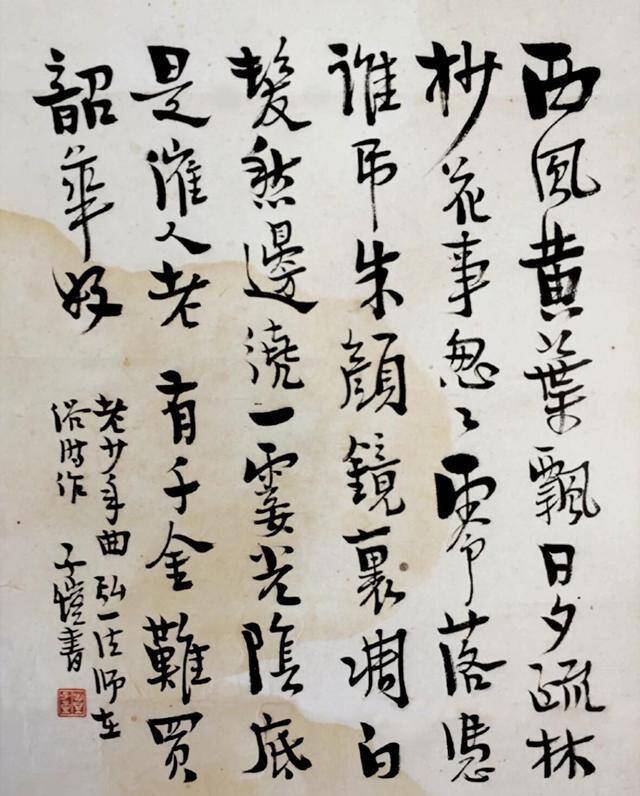 西風黄葉飄日夕疏林
杪花事怱〻零落憑
誰吊朱顔鏡裏凋白
髮愁邊繞一霎光陰底
是催人老有千金難買
韶華好
老少年曲弘一法師在
俗時作 子愷書